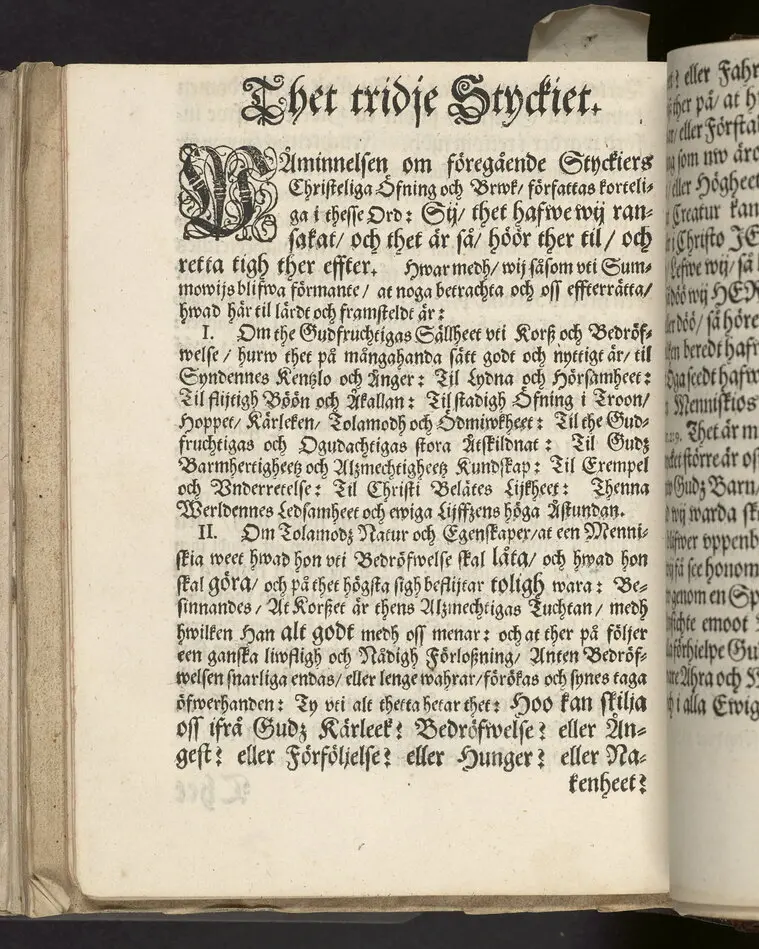 Thet tridje Styckiet.
WÅminnelsen om föregående Styckiers
Christeliga Öfning och Brwk/ författas korteli-
ga i thesse Ord: Sij/ thet hafwe wij ran-
sakat/ och thet är så/ höör ther til/ och
retta tigh ther effter. Hwar medh/ wij såsom vti Sum-
mo wijs blifwa förmante/ at noga betrachta och oss effterrätta/
hwad här til lärdt och framsteldt är:
I. Om the Gudfruchtigas Sällheet vti Korß och Bedröf-
welse/ hurw thet på mångahanda sätt godt och nyttigt är/ til
Syndennes Kentzlo och Ånger: Til Lydna och Hörsamheet:
Til flijtigh Böön och Åkallan: Til stadigh Öfning i Troon/
Hoppet/ Kärleken/ Tolamodh och Ödmiwkheet: Til the Gud-
fruchtigas och Ogudachtigas stora Åtskildnat: Til Gudz
Barmhertigheetz och Alzmechtigheetz Kundskap: Til Exempel
och Vnderretelse: Til Christi Belätes Lijkheet: Thenna
Werldennes Ledsamheet och ewiga Lijffzens höga Åstundan.
II. Om Tolamodz Natur och Egenskaper/ at een Menni-
skia weet hwad hon vti Bedröfwelse skal låta/ och hwad hon
skal göra/ och på thet högsta sigh beflijtar toligh wara: Be-
sinnandes/ At Korßet är thens Alzmechtigas Tuchtan/ medh
hwilken Han alt godt medh oss menar: och at ther på följer
een ganska liwfligh och Nådigh Förloßning/ Anten Bedröf-
welsen snarliga endas/ eller lenge wahrar/ förökas och synes taga
öfwerhanden: Ty vti alt thetta hetar thet: Hoo kan skilja
oss ifrå Gudz Kärleek? Bedröfwelse? eller Ån-
gest? eller Förföljelse? eller Hunger? eller Na-
kenheet?
eller Fahr
ther på/ at h
eller Första
som nw äro
eller Högheet
Creatur kan
Christo JE
Lefwe wij/ så
döö wij HER
döö/ så höre
beredt hafw
seedt hafw
Menniskios
Thet är m
större är
Gudz Barn/
wij warda
vppenb
see honom
genom en Sp
emoot
förhielpe Gu
Ähra och
i alla Ewig